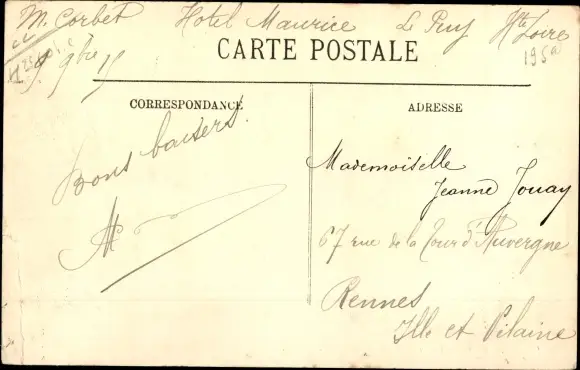 M. Corbet Hotel Maurice Le Puy Hte Loire
CARTE POSTALE
CORRESPONDANCE
Bons baisers.
M
ADRESSE
Mademoiselle
Jeanne Jouay
67 rue de la Tour d'Auvergne
Rennes
Ille et Vilaine